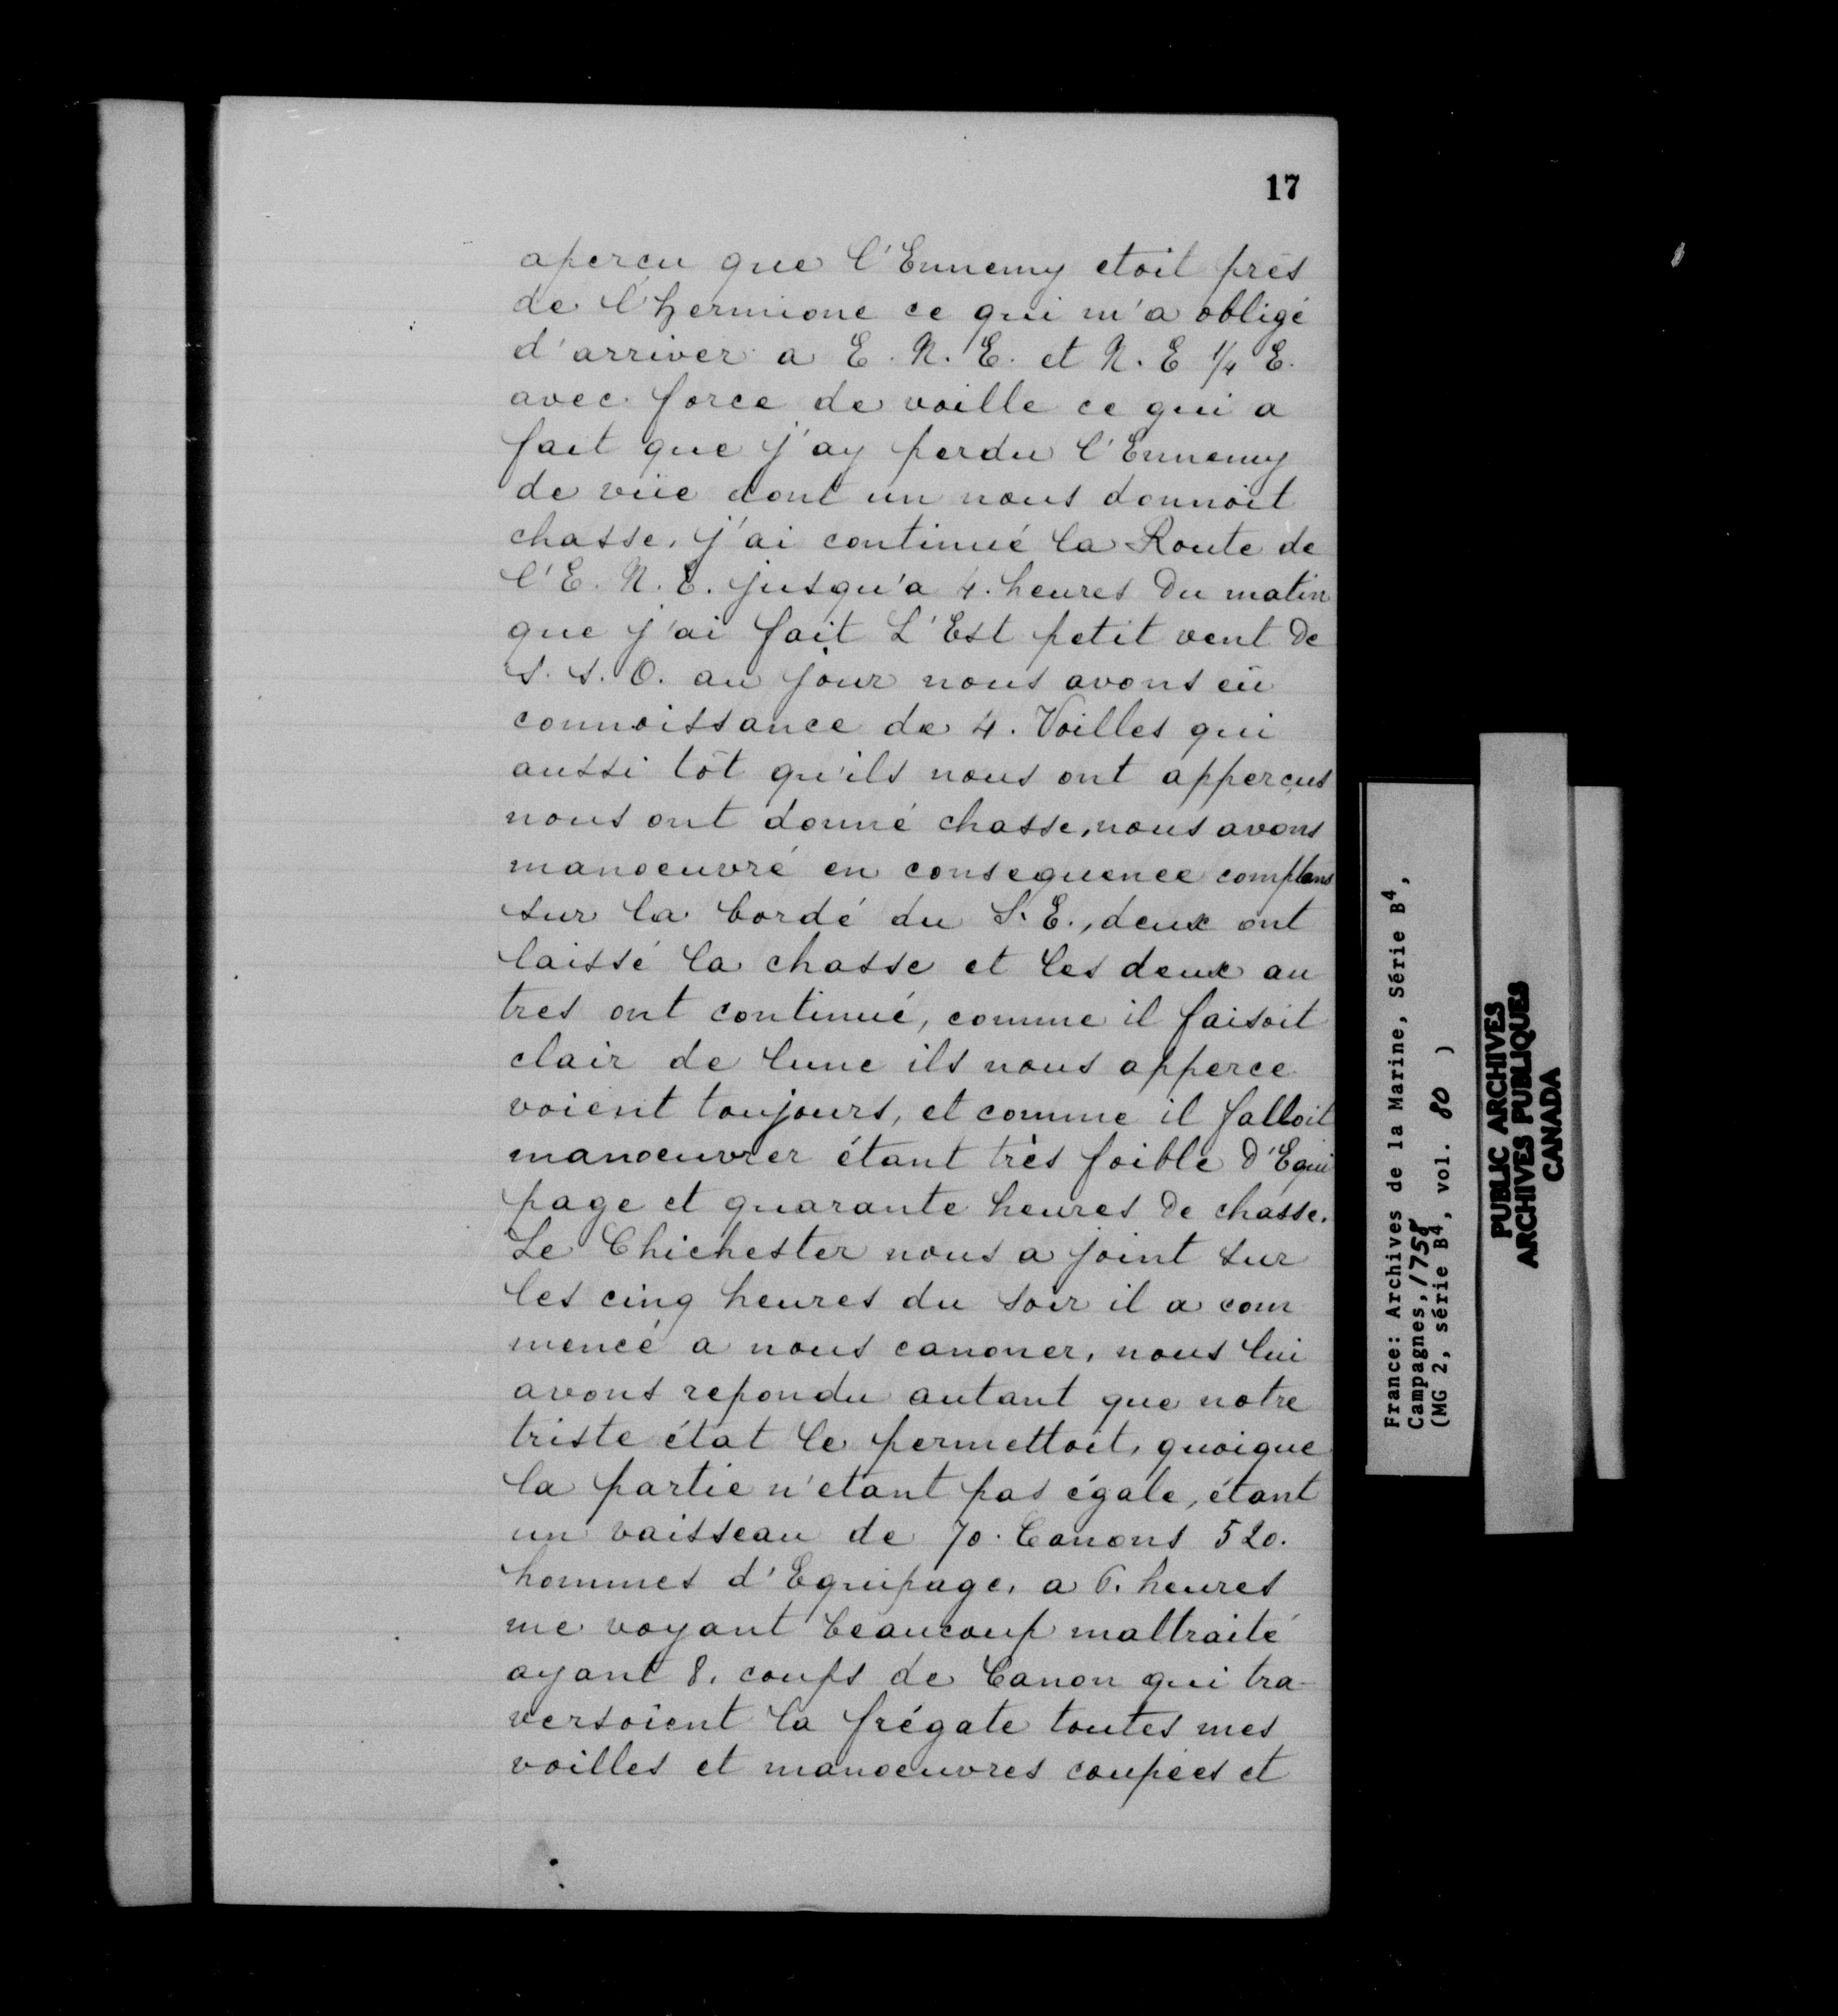 17
aperçu que l'Ennemy etoit près
de l'hermione ce qui m'a obligé
d'arriver a E. N. E. et N. E 1/4 E.
avec force de voille ce qui a
fait que j'ay perdu l'Ennemy
de vüe dont un nous donnoit
chasse, j'ai continué la Route de
l'E. N. E. jusqu'a 4. heures Du matin
que j'ai fait L'Est petit vent De
S. S. O. au jour nous avons eü
connoissance de 4. Voilles qui
aussi tôt qu'ils nous ont apperçus
nous ont donné chasse, nous avons
manoeuvré en consequence comptans
sur la bordé du S. E., deux ont
laissé la chasse et les deux au
tres ont continué, comme il faisoit
clair de lune ils nous apperce
voient toujours, et comme il falloit
manoeuvrer étant très foible D'Equi
page et quarante heures De chasse.
Le Chichester nous a joint sur
les cinq heures du soir il a com
mencé a nous canoner, nous lui
avons repondu autant que notre
triste état le permettoit, quoique
la partie n'etant pas égale, étant
un vaisseau de 70. Canons 520.
hommes d'Equipage, a 6. heures
me voyant beaucoup maltraité
ayant 8. coups de Canon qui tra-
versoient la frégate toutes mes
voilles et manoeuvres coupées et
France: Archives de la Marine, Série B4,
Campagnes, 1758
(MG 2, série B4, vol. 80 )
PUBLIC ARCHIVES
ARCHIVES PUBLIQUES
CANADA